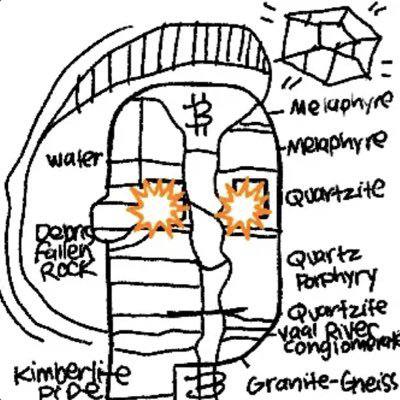 ₿
Melaphyre
Melaphyre
Water
Quartzite
Debris
Fallen
Rock
Quartz
Porphyry
Quartzite
Vaal River
Conglomerate
Kimberlite
Pipe
Granite-Gneiss
₿